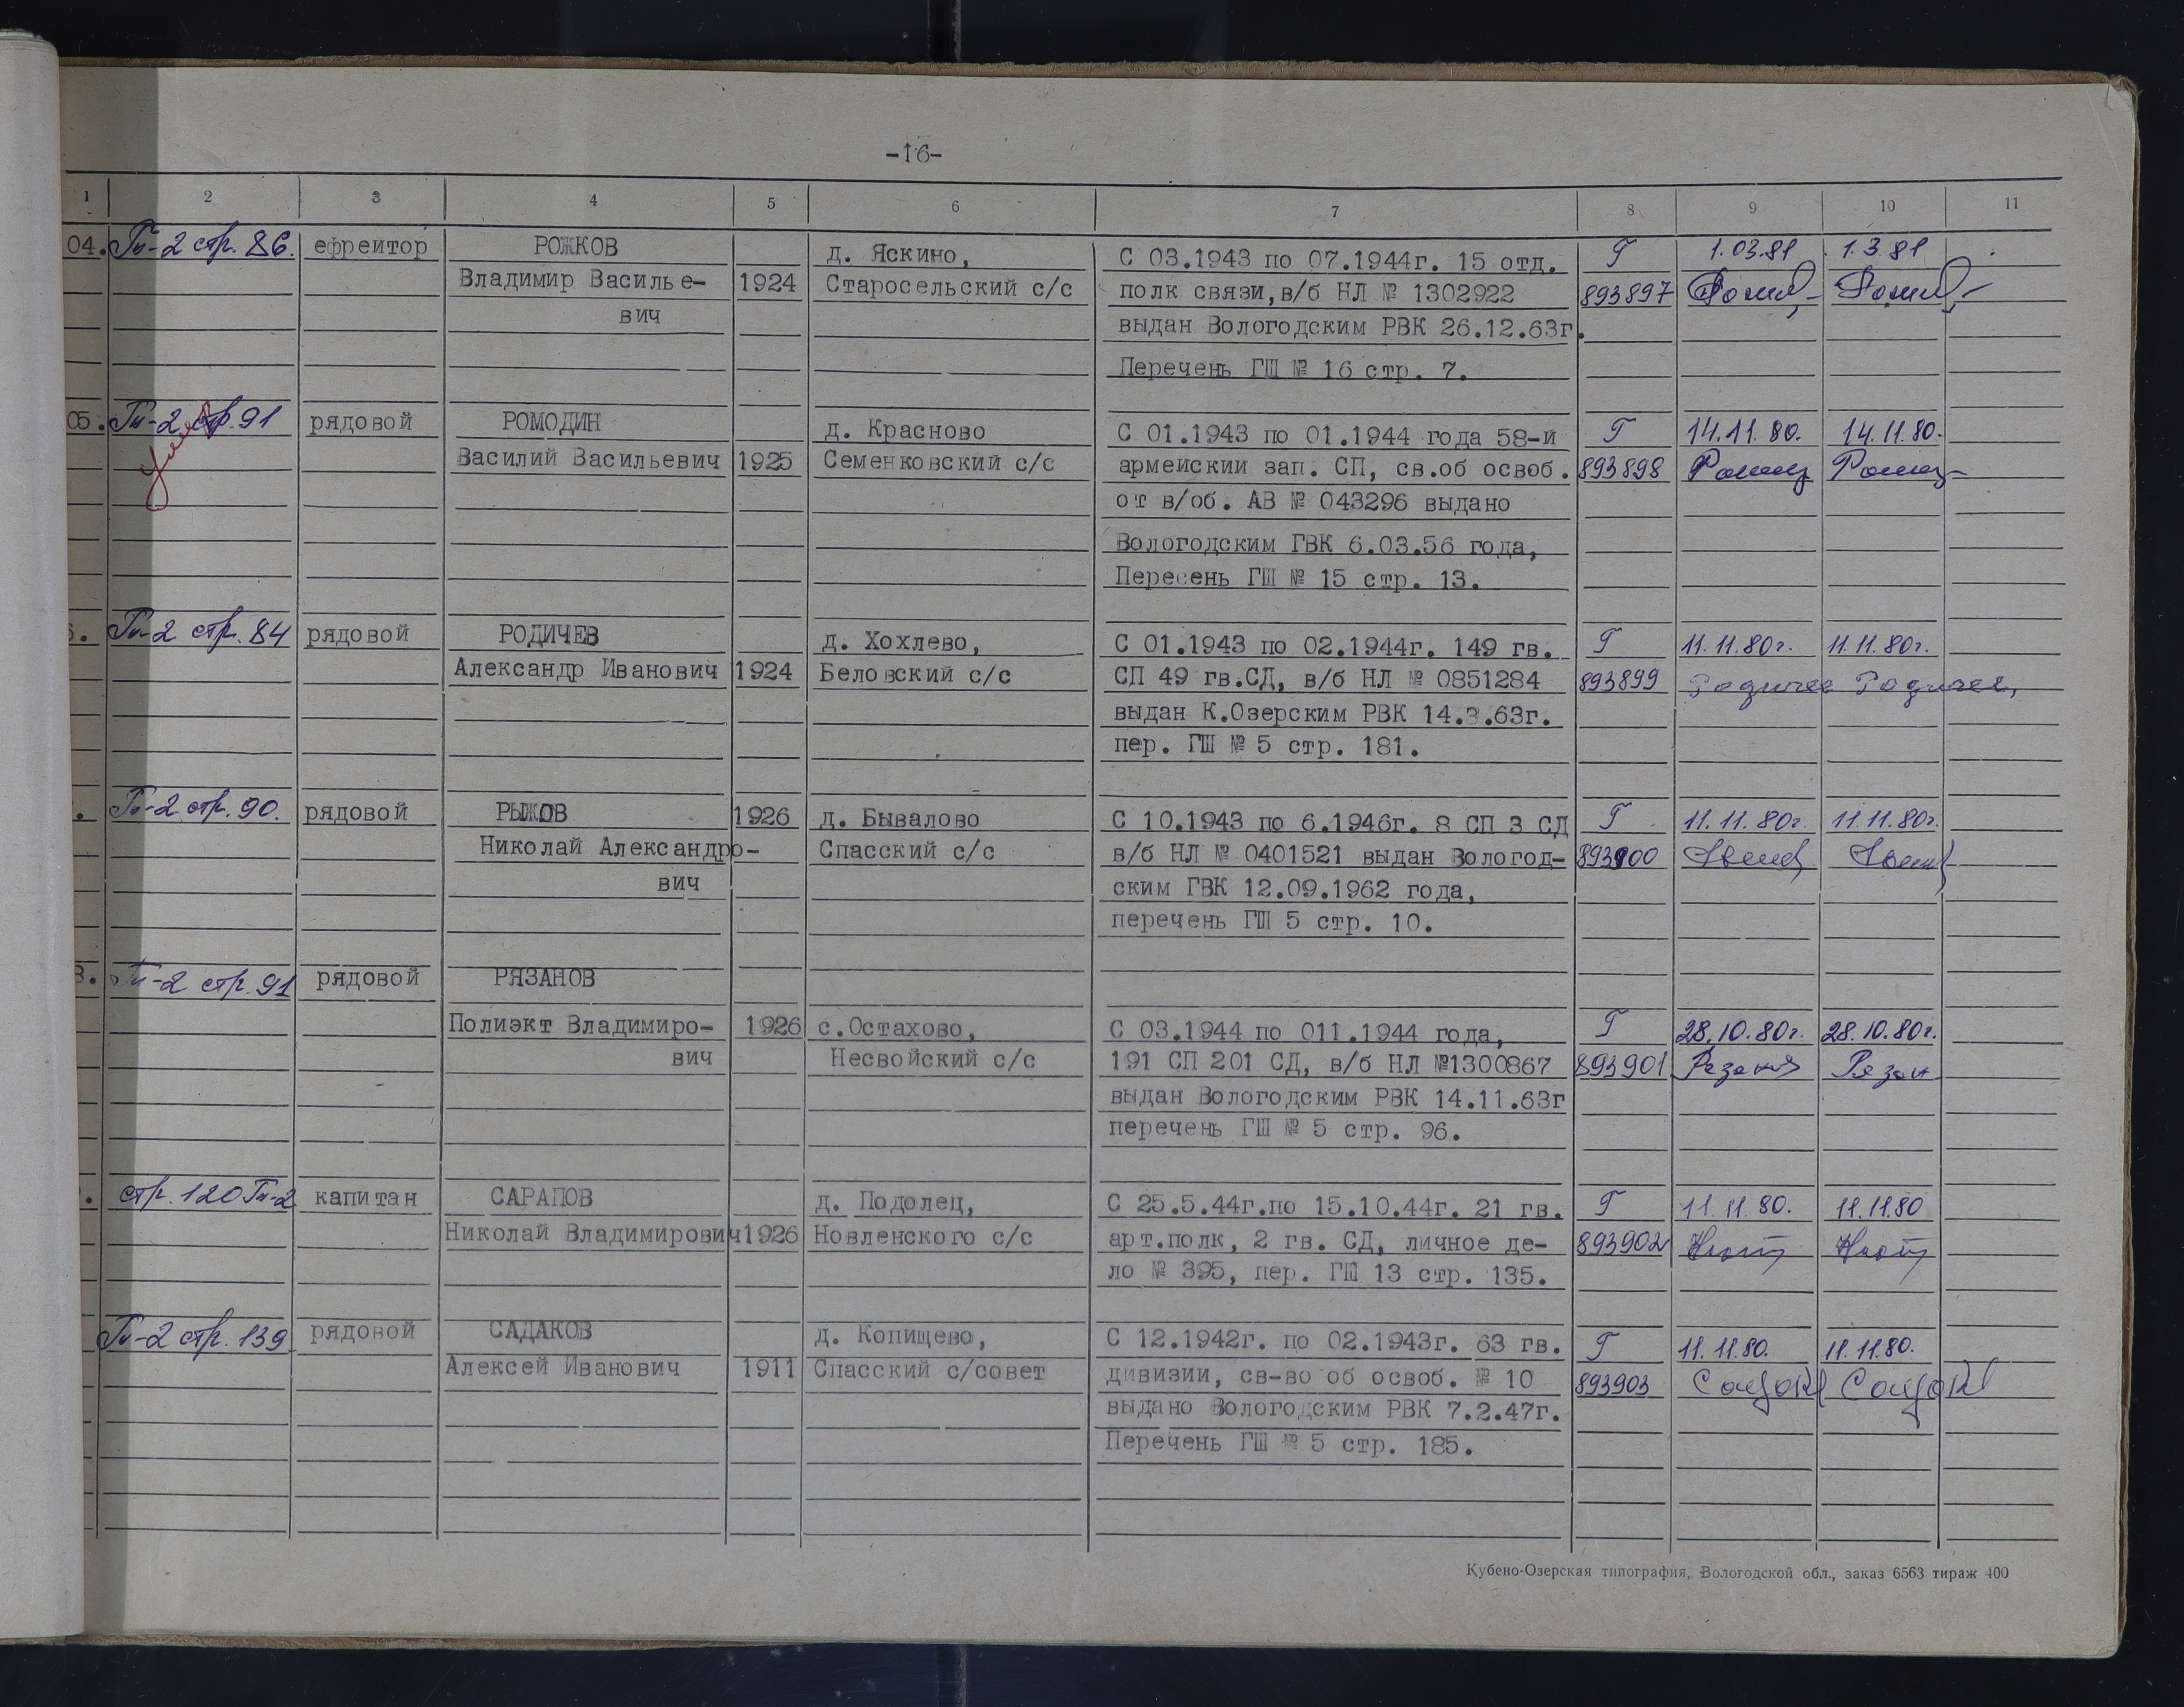 -16-
1 2 3 4 5 6 7 8 9 10 11
04. Гт-2 стр. 86. ефрейтор РОЖКОВ д. Яскино, С 03.1943 по 07.1944г. 15 отд. Г 1.03.81 1.3.81
Владимир Василье- 1924 Старосельский с/с полк связи,в/б НЛ № 1302922 893897
вич выдан Вологодским РВК 26.12.63г.
Перечень ГШ № 16 стр. 7.
05. Гт-2 стр.91 рядовой РОМОДИН д. Красново С 01.1943 по 01.1944 года 58-й Г 14.11.80. 14.11.80.
Василий Васильевич 1925 Семенковский с/с армейский зап. СП, св.об освоб. 893898
от в/об. АВ № 043296 выдано
Вологодским ГВК 6.03.56 года,
Пересень ГШ № 15 стр. 13.
Гт-2 стр. 84 рядовой РОДИЧЕВ д. Хохлево, С 01.1943 по 02.1944г. 149 гв. Г 11.11.80г. 11.11.80г.
Александр Иванович 1924 Беловский с/с СП 49 гв.СД, в/б НЛ № 0851284 893899 Родичев Родичев
выдан К.Озерским РВК 14.3.63г.
пер. ГШ № 5 стр. 181.
. Гт-2 стр. 90. рядовой РЫЖОВ 1926 д. Бывалово С 10.1943 по 6.1946г. 8 СП 3 СД Г 11.11.80г. 11.11.80г.
Николай Александро- Спасский с/с в/б НЛ № 0401521 выдан Вологод- 893900
вич ским ГВК 12.09.1962 года,
перечень ГШ 5 стр. 10.
8. Гт-2 стр. 91 рядовой РЯЗАНОВ
Полиэкт Владимиро- 1926 с.Остахово, С 03.1944 по 011.1944 года, Г 28.10.80г. 28.10.80г.
вич Несвойский с/с 191 СП 201 СД, в/б НЛ №1300867 893901
выдан Вологодским РВК 14.11.63г
перечень ГШ № 5 стр. 96.
. стр. 120 Гт-2 капитан САРАПОВ д. Подолец, С 25.5.44г.по 15.10.44г. 21 гв. Г 11.11.80. 11.11.80
Николай Владимирович 1926 Новленского с/с арт.полк, 2 гв. СД, личное де- 893902
ло № 395, пер. ГШ 13 стр. 135.
Гт-2 стр. 139 рядовой САДАКОВ д. Копищево, С 12.1942г. по 02.1943г. 63 гв. Г 11.11.80. 11.11.80.
Алексей Иванович 1911 Спасский с/совет дивизии, св-во об освоб. № 10 893903
выдано Вологодским РВК 7.2.47г.
Перечень ГШ № 5 стр. 185.
Кубено-Озерская типография, Вологодской обл., заказ 6563 тираж 400